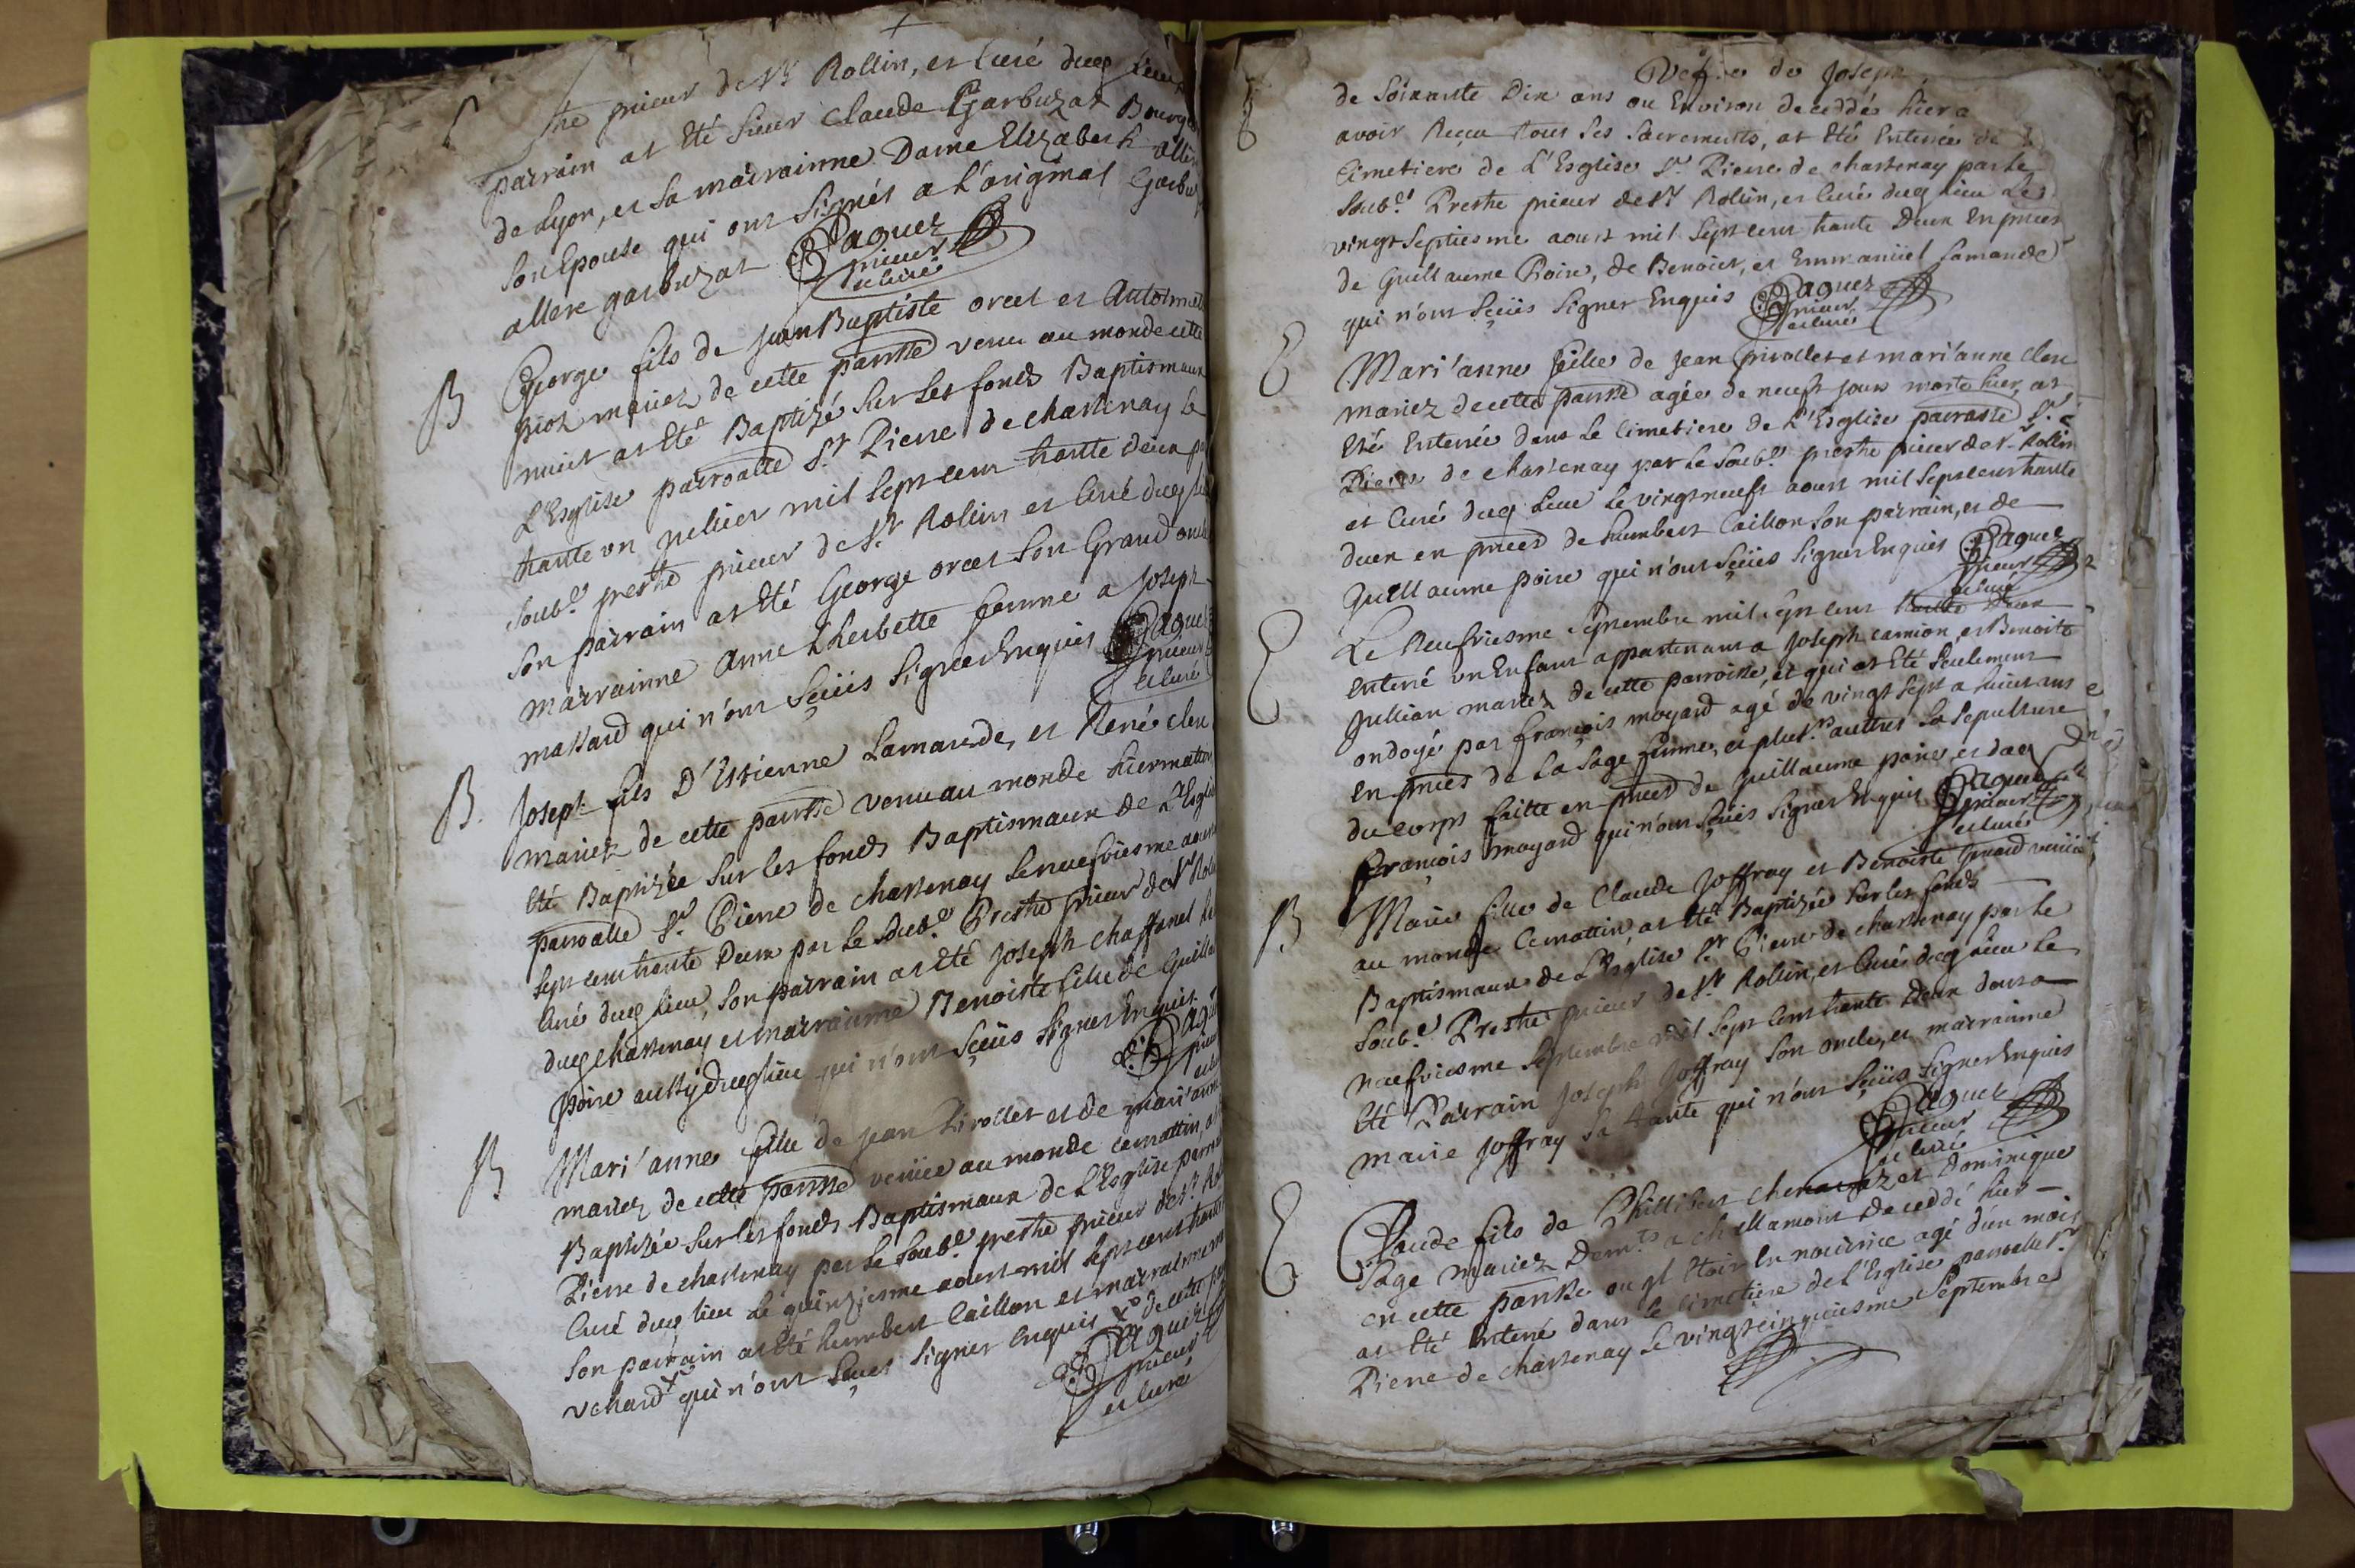 prieur de St Rollin, et Curé dud lieu
parrain at Eté Sieur Claude Garbuzat Bourg
de Lyon, et Sa mairrainne Dame Elizabeth
Son Epouse qui ont Signés a L'original
allere garbuzat Paquez
prieur
et curé
B George fils de Jean Baptiste orcel et Antoinette
mariez de cette parroisse venu au monde cette
nuict at Eté Baptizé Sur Les fonds Baptismaux
L'Esglise parroalle St Pierre de chastenay le
trante un juliet mil Sept cent trante deux
Soub.é prestre prieur de St Rollin et Curé dud
Son pairrain at Eté George orcel Son Grand oncle
mairrainne Anne Lherbette femme a Joseph
massard qui n'ont Sçeüs Signer Enquis Paquez
prieur
et curé
B. Joseph fils D'Estienne Lamarde, et Renée
mariez de cette parroisse venu au monde hier matin
Eté Baptizée Sur les fonds Baptismaux de L'Esglise
parroalle St Pierre de chastenay le neufviesme aoust
Sept cent trante Deux par Le Soub.é Prestre prieur de St Rol
Curé dud Lieu, Son pairrain at Eté Joseph chaffanel
dud chastenay et mairrainne Benoiste fille de Guilla
poire aussy dud lieu qui n'ont Sçeüs Signer Enquis
Paq
prieur
B Mari'anne fille de Jean Pirollet et de mari'anne
mariez de cette parroisse venüe au monde ce mattin,
Baptizée Sur les fonds Baptismaux de L'Esglise
Pierre de chastenay par Le Soub.é prestre prieur de St
Curé dud lieu Le quinziesme aoust mil Sept cent trante
Son pairrain at Eté humbert Caillon et mairrainne
vchard qui n'ont Sçeues Signer Enquis de cette
Paquez
prieur
et curé
Vefve de Joseph
de Soixante Dix ans ou Environ deceddée hier a
avoir Reçeu tous Ses Sacrements, at Eté Enterrée
Cimetiere de L'Esglise St Pierre de chastenay par Le
Soub.é Prestre prieur de St Rollin, et curé dud lieu Le
vingt Septiesme aoust mil Sept cent trante Deux En prnce
de Guillaume Poire, de Benoict, et Emmanüel Lamande
qui n'ont Sçeüs Signer Enquis Paquez
prieur
et curé
Mari'anne fille de Jean Pirollet et mari'anne
mariez de cette parroisse agée de neuft jours morte hier, at
Eté Enterrée dans Le Cimetiere de L'Esglise St
Pierre de chastenay par Le Soub.é prestre prieur de St Rollin
et Curé dud Lieu Le vingt neuft aoust mil Sept cent trante
deux en prnce de humbert Caillon Son pairrain, et de
Guillaume poire qui n'ont Sçeüs Signer Enquis Paquez
prieur
et curé
Le Neufviesme Septembre mil Sept cent trante Deux
enterré un Enfant appartenant a Joseph camion, et Benoite
Jullian mariez de cette parroisse, et qui at Eté Seulement
ondoyé par françois moyard agé de vingt Sept a huict ans
en prnce de La Sage femme, et plus.rs autres La Sepulture
du corps faitte en prnce de Guillaume poire, et dud
françois moyard qui n'ont Sçeüs Signer Enquis Paquez
prieur
et curé
B Marie fille de Claude Joffray et Benoiste venüe
au monde Ce mattin, at Eté Baptizée Sur les fonds
Baptismaux de L'Esglise St Pierre de chastenay par Le
Soub.é Prestre prieur de St Rollin, et Curé dud lieu Le
neufviesme Septembre mil Sept cent trante Deux dont a
Eté Pairrain Joseph Joffray Son oncle, et mairrainne
Marie Joffray Sa tante qui n'ont Sçeüs Signer Enquis
Paquez
prieur
et curé
Claude fils de Phillibert et Dominique
Sage mariez Dem.ts a challamont Deceddé hier
en cette parroisse ou Il Etoit En nourrice agé d'un mois
at Eté Enterré dans le Cimetiere de L'Esglise parroalle St
Pierre de chastenay Le vingt cinquiesme Septembre